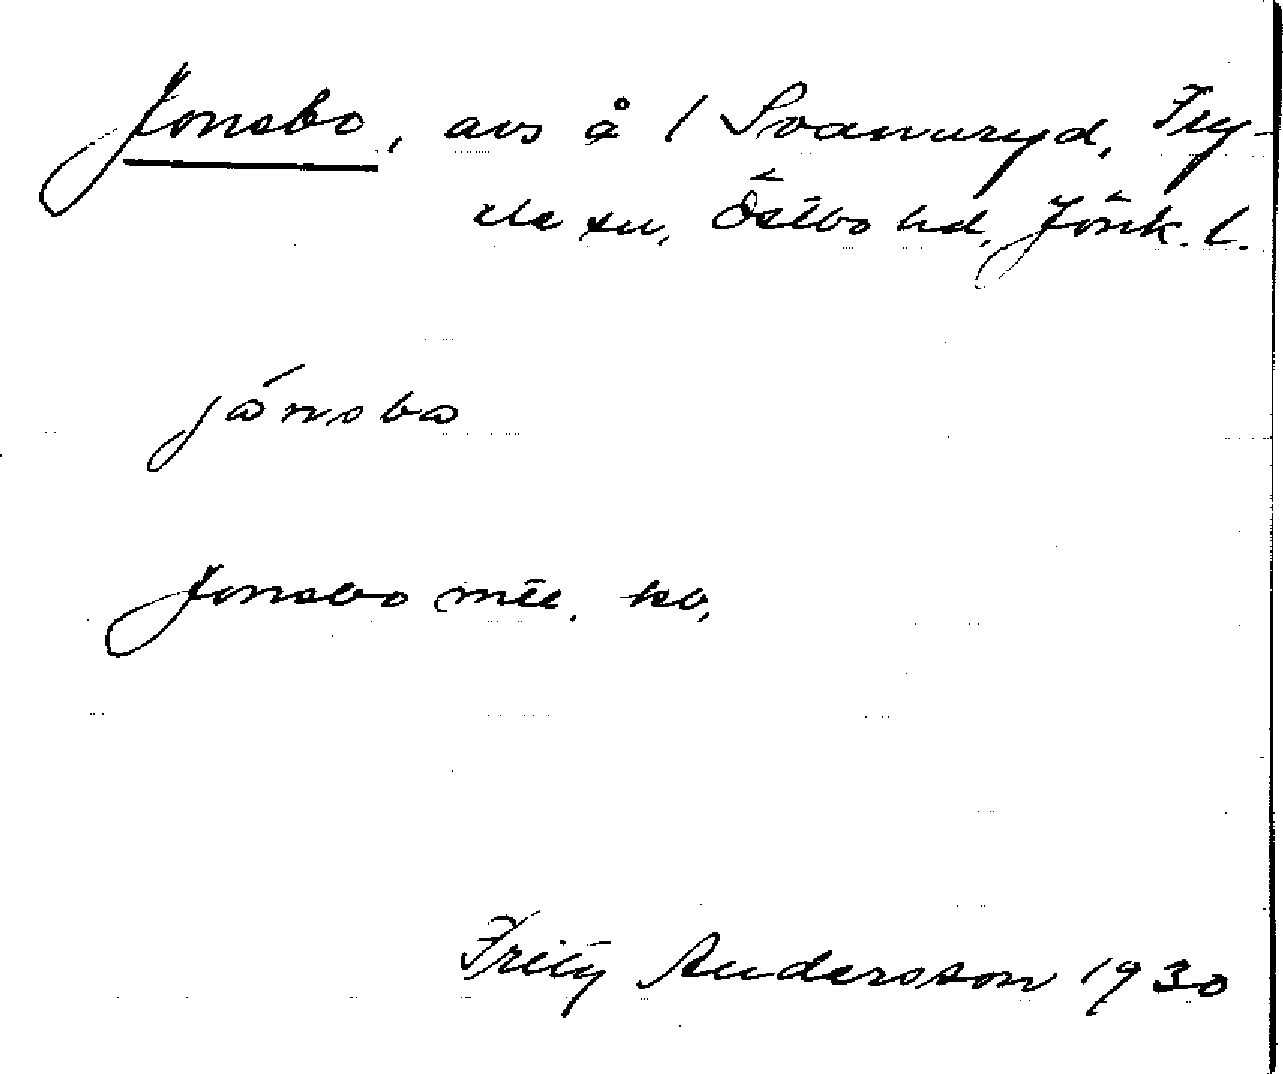 Jonsbo, avs å 1 Svanuryd, Fry-
ele sn, Östbo hd, Jönk. l.
jónsbo
Jonsbo mtl. kb,
Fritz Andersson 1930